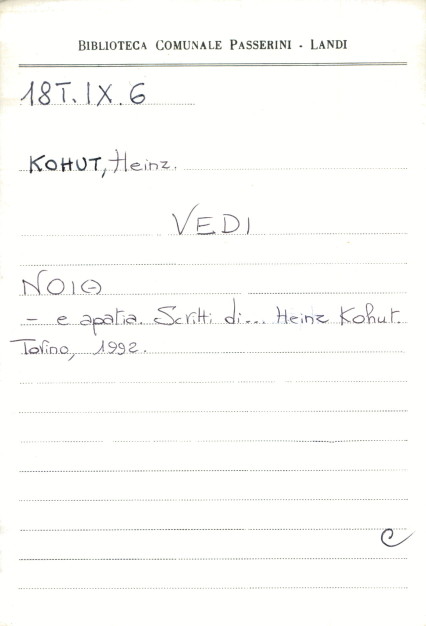 BIBLIOTECA COMUNALE PASSERINI - LANDI
18T.IX.6
KOHUT, Heinz.
VEDI
NOIA
- e apatia. Scritti di... Heinz Kohut.
Torino, 1992.
C